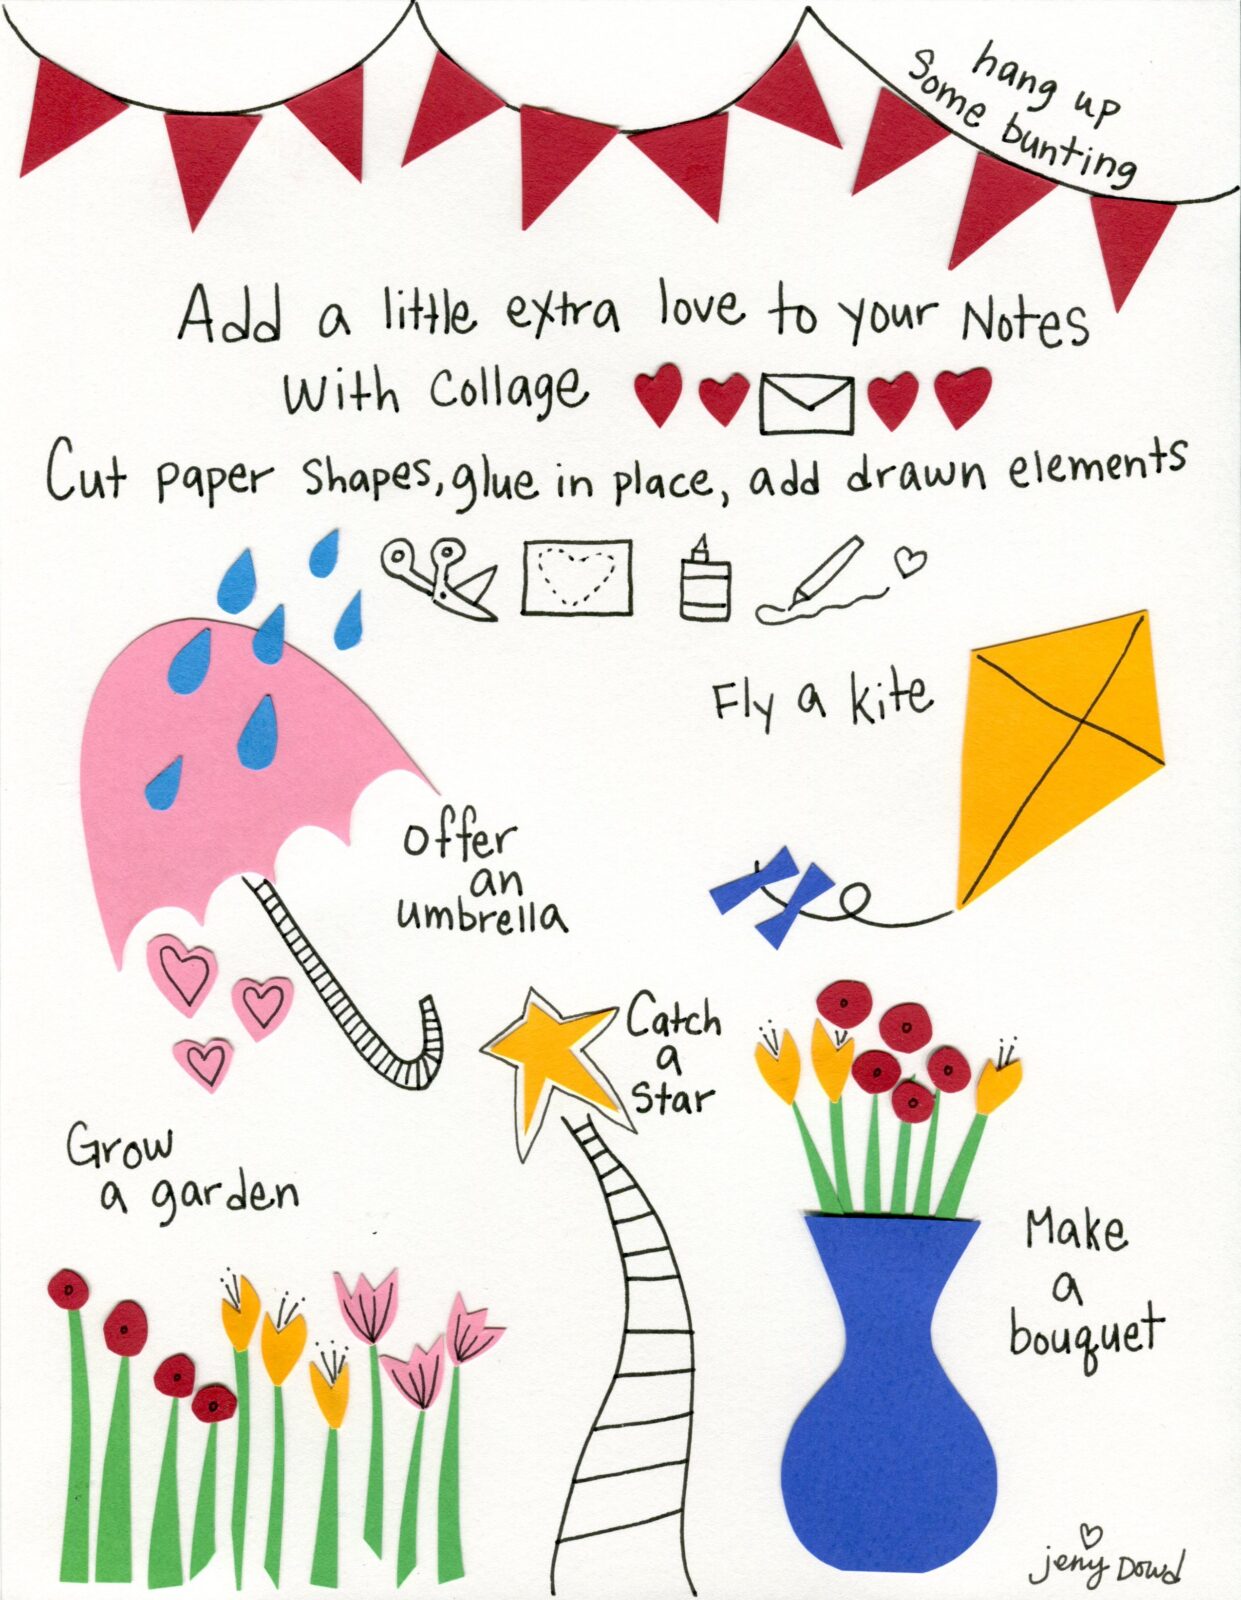 hang up
some bunting
Add a little extra love to your Notes
with collage
Cut paper shapes, glue in place, add drawn elements
Fly a kite
Offer
an
umbrella
Catch
a
Star
Grow
a garden
Make
a
bouquet
jeny Dowd